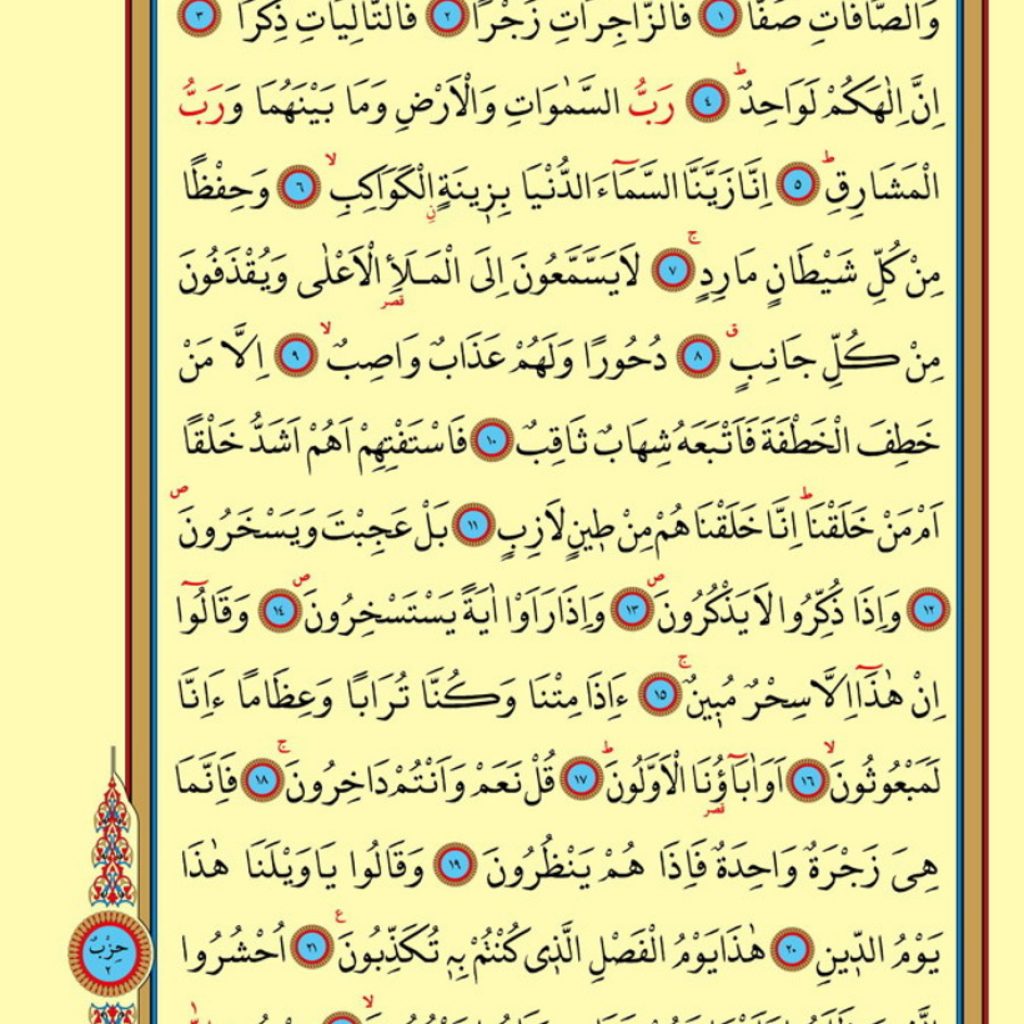 وَالصَّافَّاتِ صَفًّا ﴿١﴾ فَالزَّاجِرَاتِ زَجْرًا ﴿٢﴾ فَالتَّالِيَاتِ ذِكْرًا ﴿٣﴾
اِنَّ اِلٰهَكُمْ لَوَاحِدٌ ط ﴿٤﴾ رَبُّ السَّمٰوَاتِ وَالْاَرْضِ وَمَا بَيْنَهُمَا وَرَبُّ
الْمَشَارِقِ ط ﴿٥﴾ اِنَّا زَيَّنَّا السَّمَٓاءَ الدُّنْيَا بِزِينَةٍ نِ الْكَوَاكِبِ لا ﴿٦﴾ وَحِفْظًا
مِنْ كُلِّ شَيْطَانٍ مَارِدٍ ج ﴿٧﴾ لَا يَسَّمَّعُونَ اِلَى الْمَلَأِ قصر الْاَعْلٰى وَيُقْذَفُونَ
مِنْ كُلِّ جَانِبٍ ق ﴿٨﴾ دُحُورًا وَلَهُمْ عَذَابٌ وَاصِبٌ لا ﴿٩﴾ اِلَّا مَنْ
خَطِفَ الْخَطْفَةَ فَاَتْبَعَهُ شِهَابٌ ثَاقِبٌ ﴿١٠﴾ فَاسْتَفْتِهِمْ اَهُمْ اَشَدُّ خَلْقًا
اَمْ مَنْ خَلَقْنَا ط اِنَّا خَلَقْنَاهُمْ مِنْ طِينٍ لَازِبٍ ﴿١١﴾ بَلْ عَجِبْتَ وَيَسْخَرُونَ ص
﴿١٢﴾ وَاِذَا ذُكِّرُوا لَا يَذْكُرُونَ ص ﴿١٣﴾ وَاِذَا رَاَوْا اٰيَةً يَسْتَسْخِرُونَ ص ﴿١٤﴾ وَقَالُٓوا
اِنْ هٰذَٓا اِلَّا سِحْرٌ مُبِينٌ ج ﴿١٥﴾ ءَاِذَا مِتْنَا وَكُنَّا تُرَابًا وَعِظَامًا ءَاِنَّا
لَمَبْعُوثُونَ لا ﴿١٦﴾ اَوَاٰبَٓاؤُ۬نَا قصر الْاَوَّلُونَ ط ﴿١٧﴾ قُلْ نَعَمْ وَاَنْتُمْ دَاخِرُونَ ج ﴿١٨﴾ فَاِنَّمَا
هِيَ زَجْرَةٌ وَاحِدَةٌ فَاِذَا هُمْ يَنْظُرُونَ ﴿١٩﴾ وَقَالُوا يَا وَيْلَنَا هٰذَا
يَوْمُ الدِّينِ ﴿٢٠﴾ هٰذَا يَوْمُ الْفَصْلِ الَّذِي كُنْتُمْ بِهِ تُكَذِّبُونَ ع ﴿٢١﴾ اُحْشُرُوا
حِزْبٌ
٢